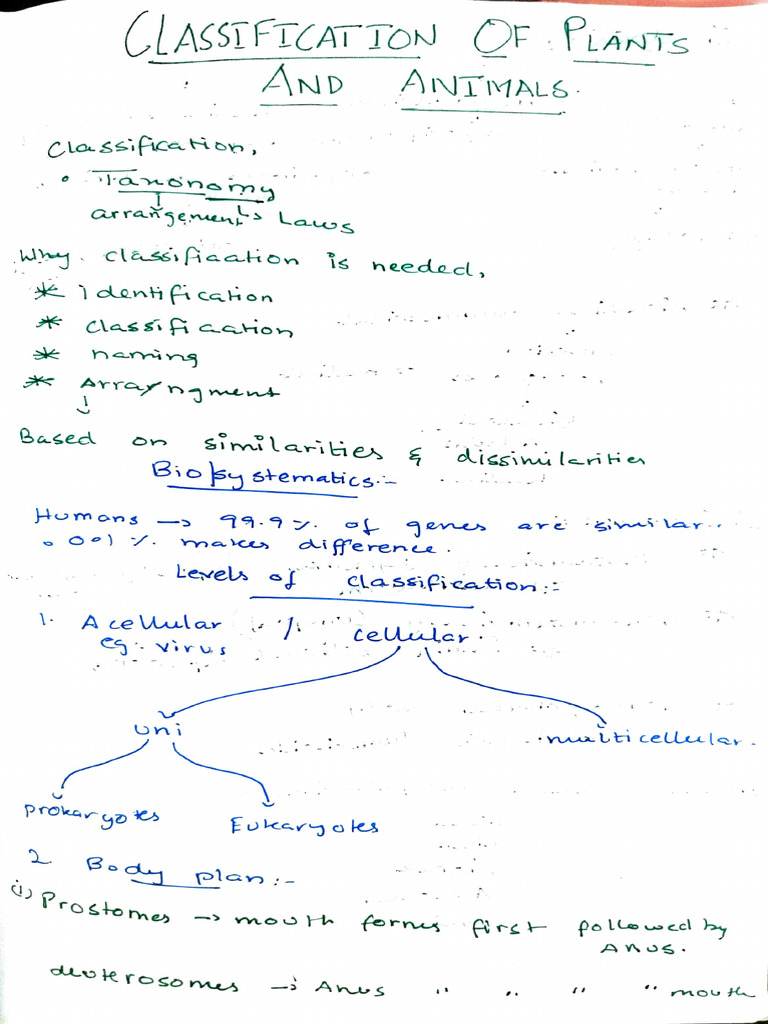 CLASSIFICATION OF PLANTS
AND ANIMALS.
Classification,
• Taxonomy
arrangement ↳ Laws
Why classifiaation is needed,
* identification
* classifiaation
* naming
* Arrayngment
↓
Based on similarities & dissimilarities
Bio/systematics:-
Humans → 99.9% of genes are similar.
0.001% makes difference.
Levels of classification:-
1. Acellular / cellular.
eg. virus
uni multicellular.
prokaryotes Eukaryotes
2 Body plan:-
(i) Prostomes → mouth forms first followed by
Anus.
deuterosomes → Anus " " " " mouth